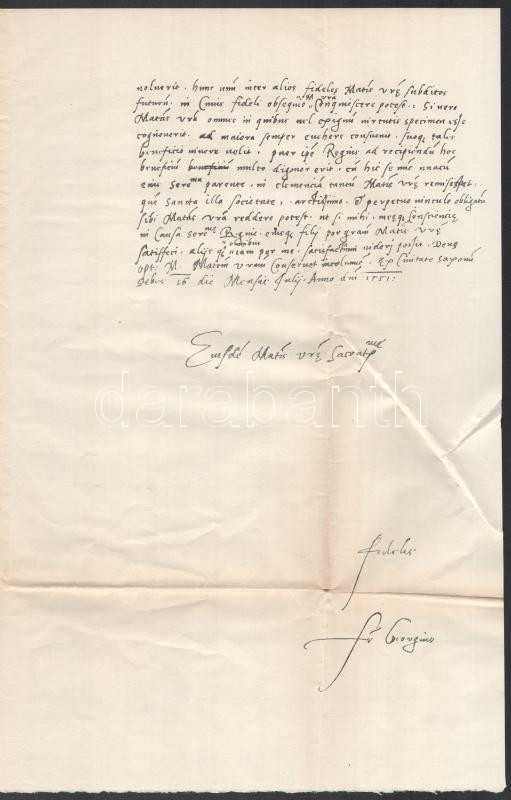 noluerit. hunc unū inter alios fideles Matis vrę subditos
futurū. in Cuius fideli obsequio M. vra Conquiescere potest. Si vero
Matas vra omnes in quibus vel exiguū virtutis specimen esse
cognouerit. ad maiora semper euehere consueuit. suoq; tali
beneficio iuuare uelit, puer ipē Regius ad recipiendū hoc
beneficiū beneficiū multo dignior erit. cū hic se
eius Serma parente, in clemenciā tantū Matis vrę
quē Sancta illa Societate, arctissimo. Et perpetuo uinculo obligatū
sibi Matas vra reddere potest. ut si mihi. meęq; Consciencię
in Causa Sermę Reginę. eiusq; filij per gram Matis vrę
satisfieri. alijs q; omnibus iam per me. satisfactum uideri possit. Deus
opt. M. Matem vram Conseruet incolumē. Ex Ciuitate Saxoniī
Sebes 16 die Mensis Julij. Anno dni 1551:
Eiusdē Matis vrę Sacratmę
darabanth
fidelis
fr Georgius